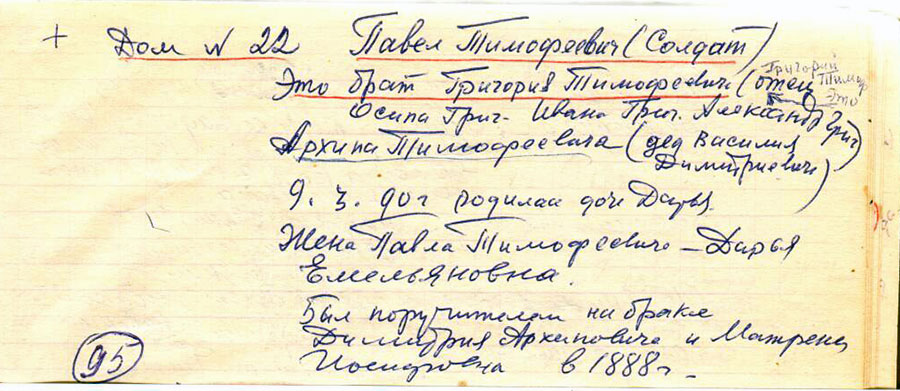 + Дом N 22 Павел Тимофеевич (Солдат)
Это брат Григория Тимофеевича (отец
Григорий
Тимоф
Это
Осипа Григ. Ивана Григ. Александр Григ)
Архипа Тимофеевича (дед Василия
Димитриевича)
9. 3. 90 г родилась дочь Дарья.
Жена Павла Тимофеевича - Дарья
Емельяновна.
Был поручителем на браке
Димитрия Архиповича и Матрены
Иосифовна в 1888 г.
95